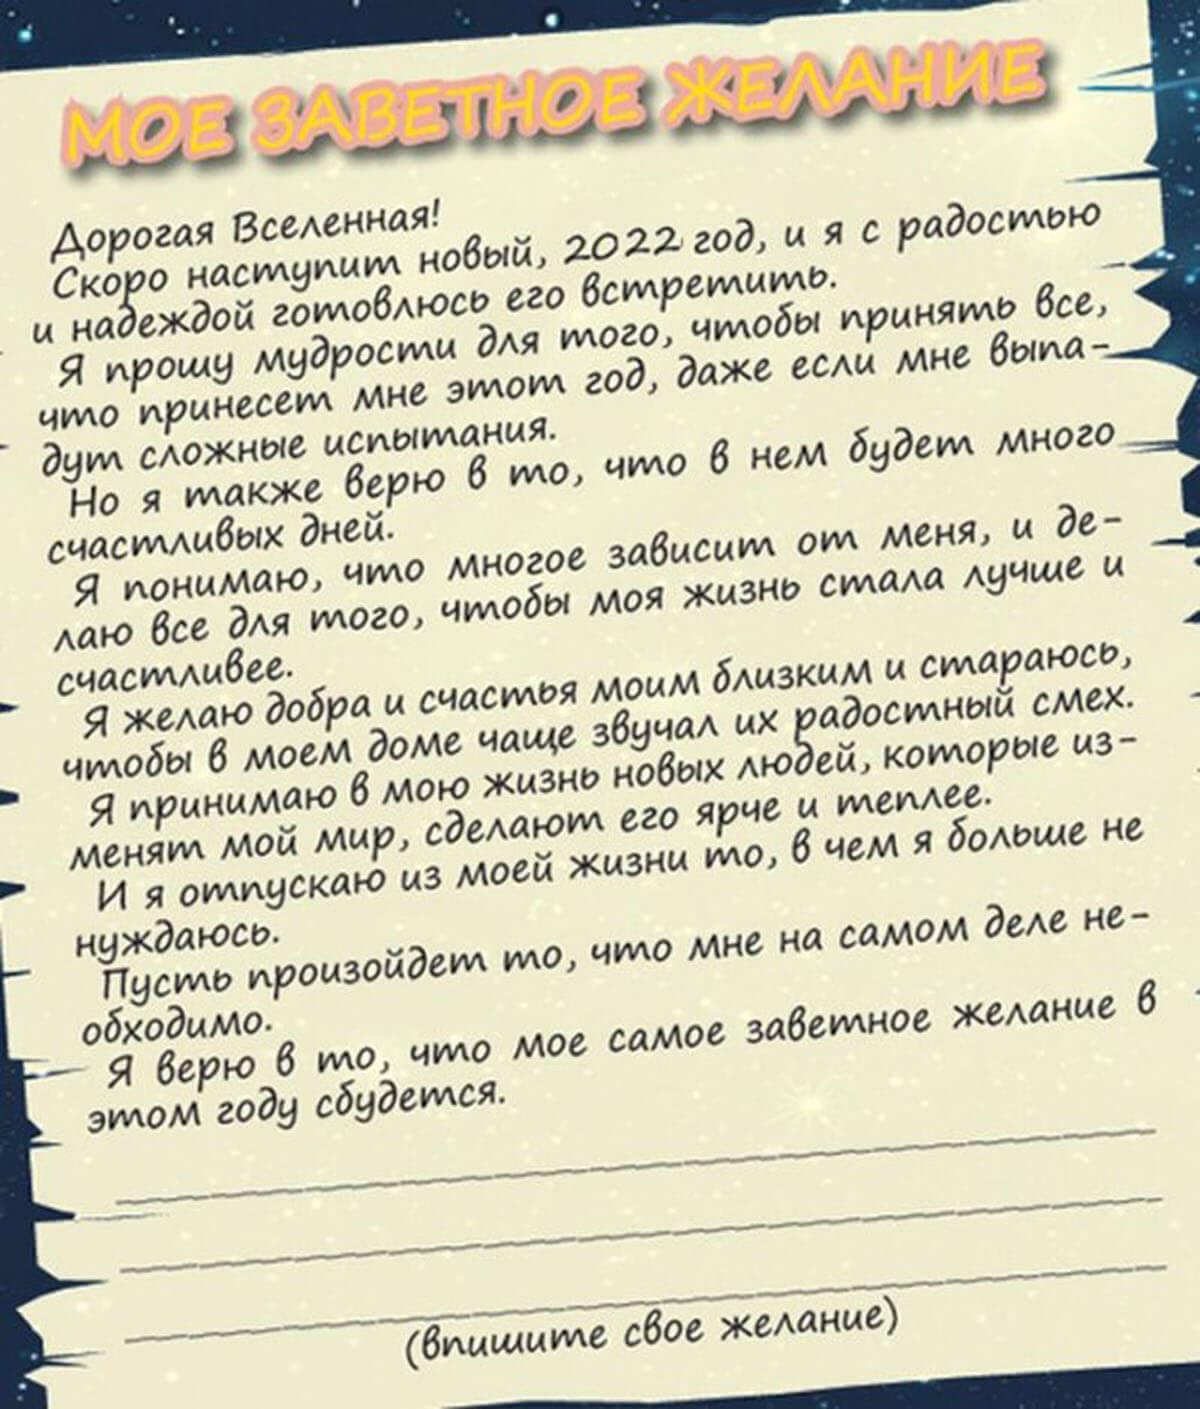 МОЕ ЗАВЕТНОЕ ЖЕЛАНИЕ
Дорогая Вселенная!
Скоро наступит новый, 2022 год, и я с радостью
и надеждой готовлюсь его встретить.
Я прошу мудрости для того, чтобы принять все,
что принесет мне этот год, даже если мне выпа-
дут сложные испытания.
Но я также верю в то, что в нем будет много
счастливых дней.
Я понимаю, что многое зависит от меня, и де-
лаю все для того, чтобы моя жизнь стала лучше и
счастливее.
Я желаю добра и счастья моим близким и стараюсь,
чтобы в моем доме чаще звучал их радостный смех.
Я принимаю в мою жизнь новых людей, которые из-
менят мой мир, сделают его ярче и теплее.
И я отпускаю из моей жизни то, в чем я больше не
нуждаюсь.
Пусть произойдет то, что мне на самом деле не-
обходимо.
Я верю в то, что мое самое заветное желание в
этом году сбудется.
(впишите свое желание)